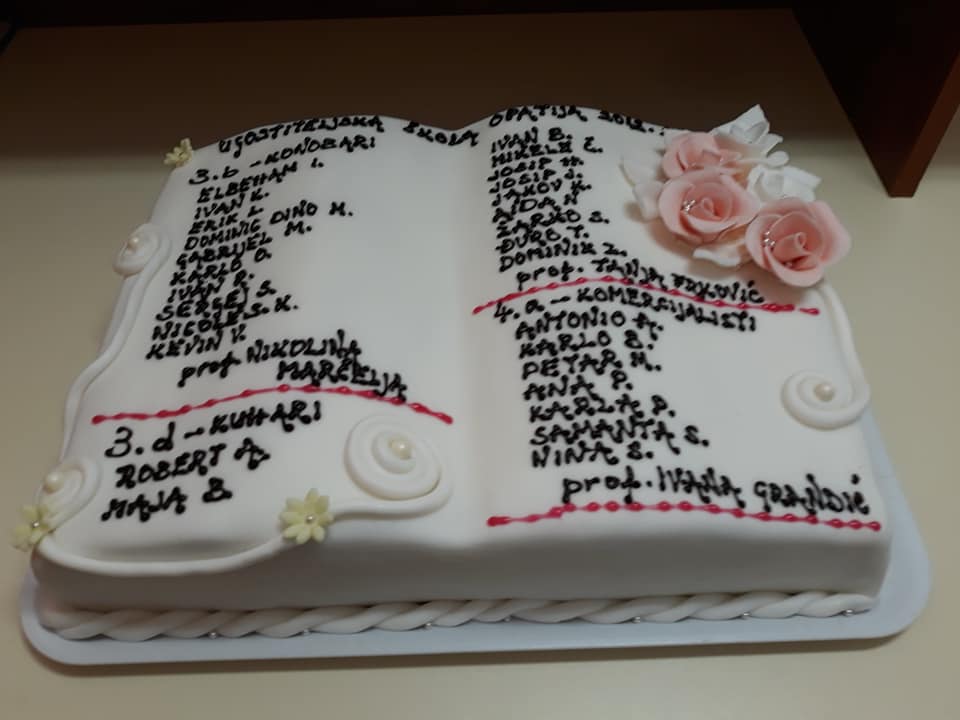 UGOSTITELJSKA ŠKOLA OPATIJA
3.b - KONOBARI
ELBEHAM I.
IVAN K.
ERIK L.
DOMINIC DINO M.
GABRIJEL M.
KARLO O.
IVAN R.
SERGEJ S.
NICOLE S. K.
KEVIN V.
prof. NIKOLINA
MARČELJA
3.d - KUHARI
ROBERT A.
MAJA B.
IVAN B.
MIKELE Č.
JOSIP H.
JOSIP J.
JAKOV K.
AIDA N
ŽARKO S.
ĐURO T.
DOMINIK Z.
prof. TANJA FRKOVIĆ
4.a - KOMERCIJALISTI
ANTONIO A.
KARLO B.
PETAR M.
ANA P.
KARLA P.
SAMANTA S.
NINA S.
prof. IVANA GRANDIĆ